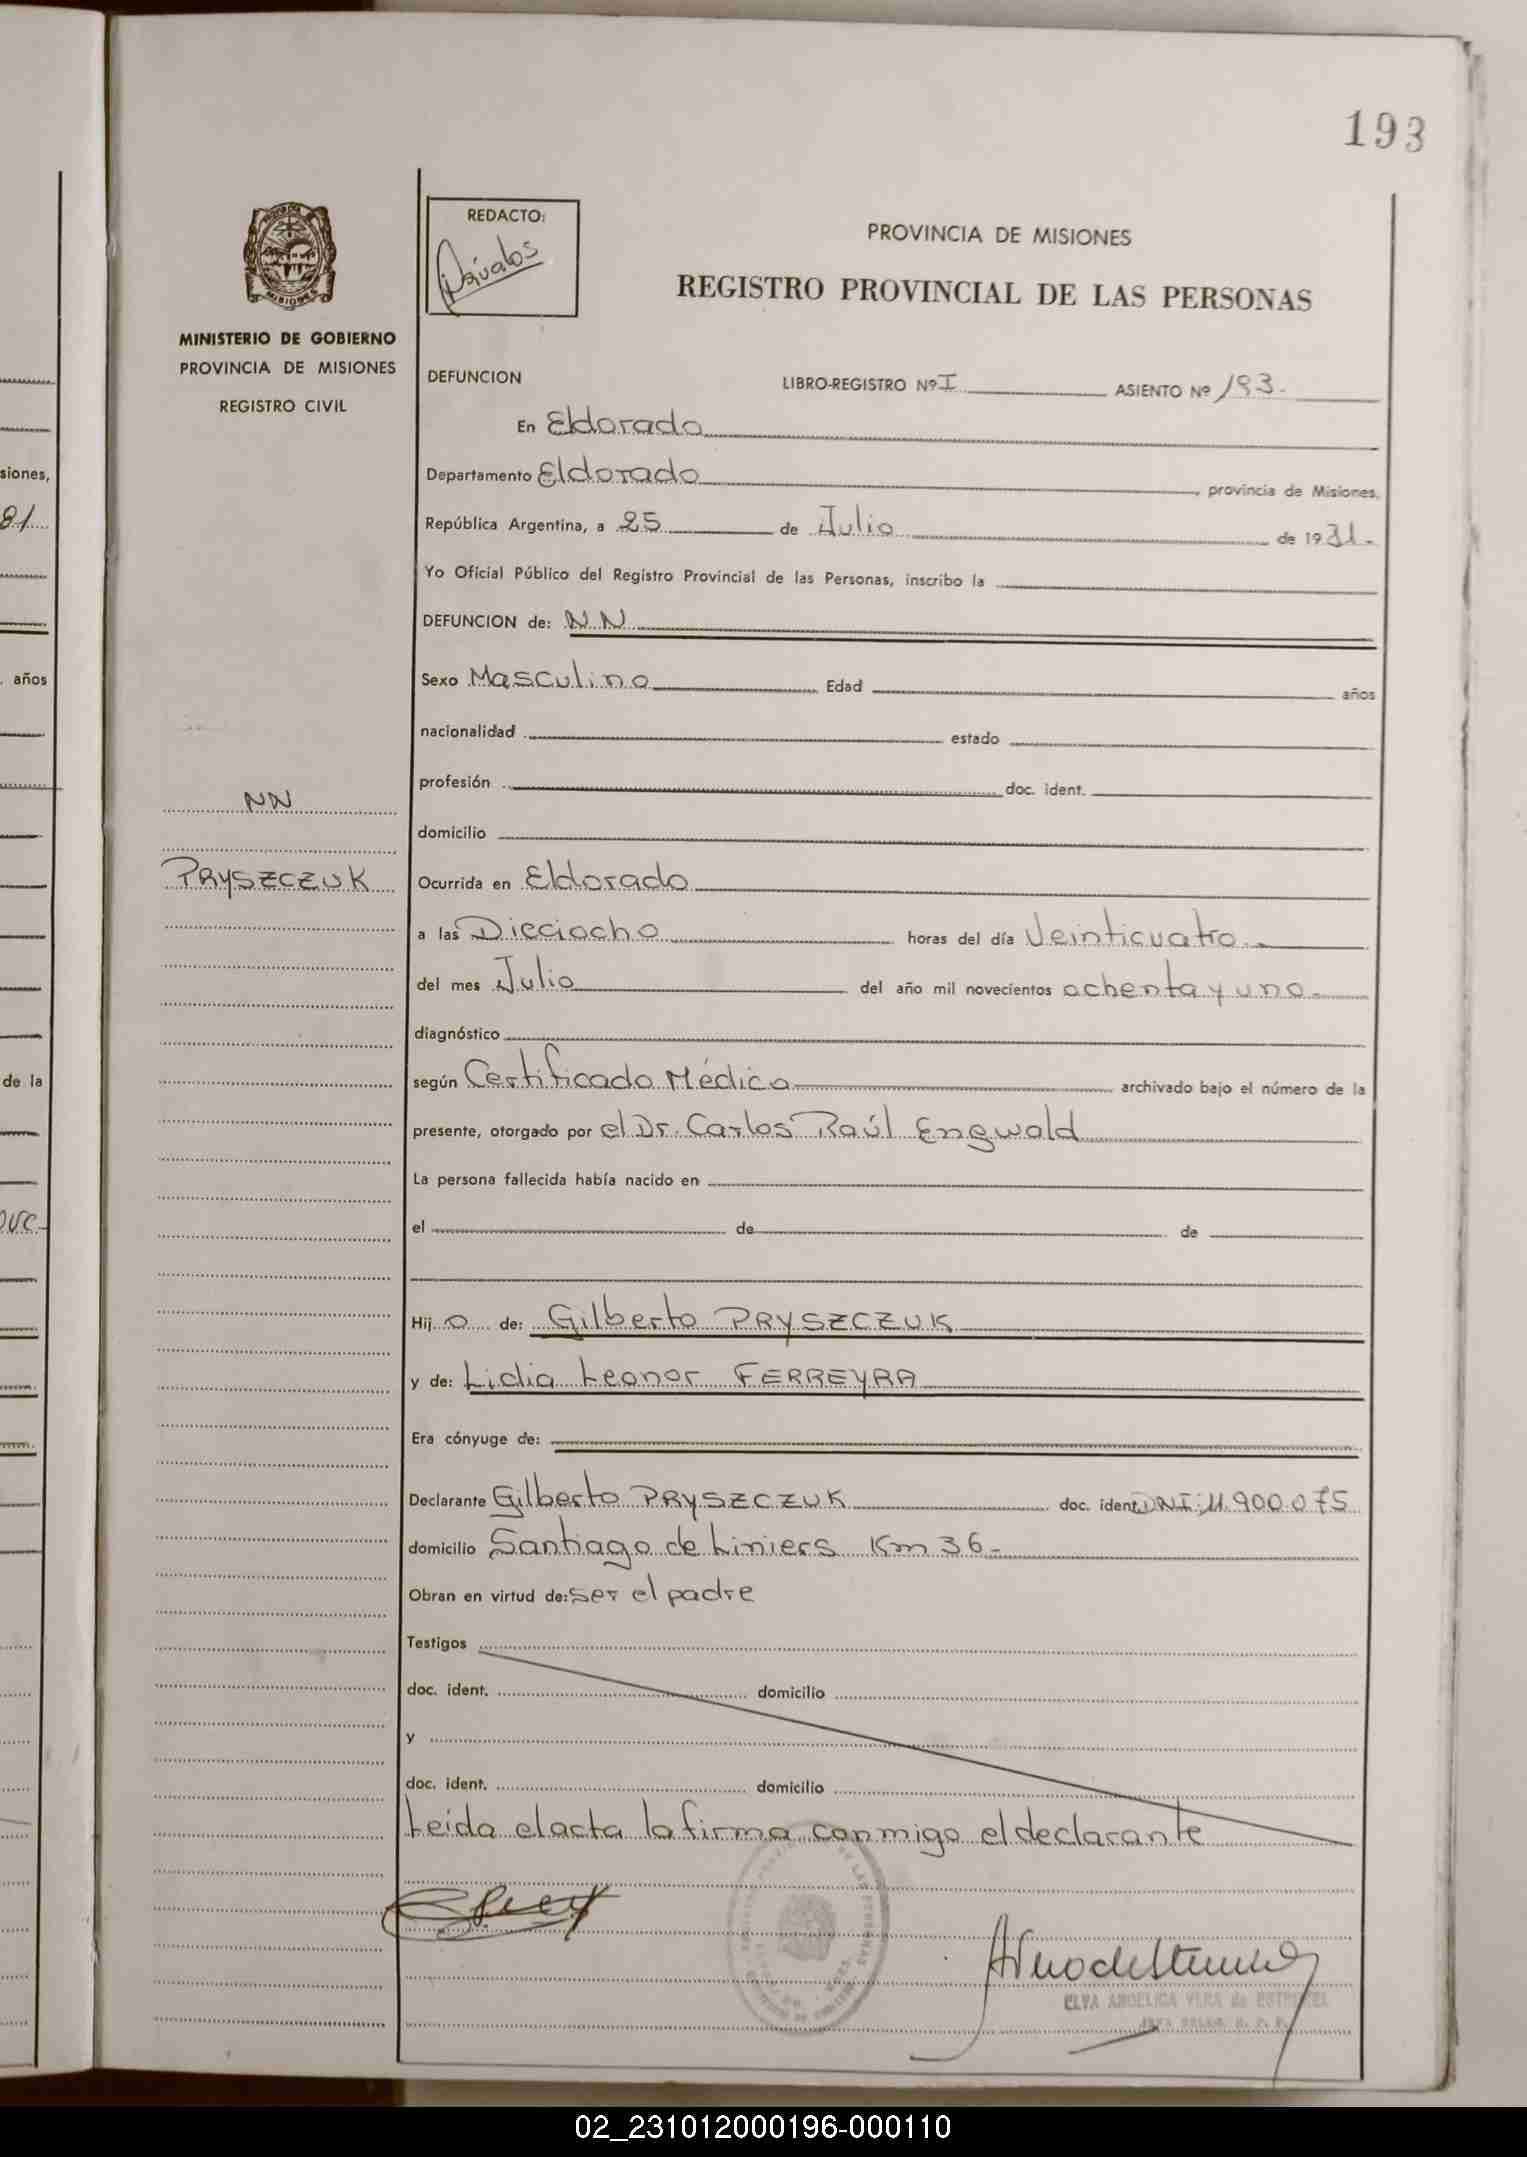 193
REDACTO:
PROVINCIA DE MISIONES
REGISTRO PROVINCIAL DE LAS PERSONAS
MISIONES
MINISTERIO DE GOBIERNO
PROVINCIA DE MISIONES
REGISTRO CIVIL
DEFUNCION LIBRO-REGISTRO Nº I ASIENTO Nº 193.
En Eldorado
Departamento Eldorado, provincia de Misiones,
República Argentina, a 25 de Julio de 1981.
Yo Oficial Público del Registro Provincial de las Personas, inscribo la
DEFUNCION de: NN
Sexo Masculino Edad años
nacionalidad estado
profesión doc. ident.
NN
domicilio
PRYSZCZUK
Ocurrida en Eldorado
a las Dieciocho horas del día Veinticuatro
del mes Julio del año mil novecientos ochenta y uno.
diagnóstico
según Certificado Médico archivado bajo el número de la
presente, otorgado por el Dr. Carlos Raúl Engwald
La persona fallecida había nacido en
el de de
Hij o de: Gilberto PRYSZCZUK
y de: Lidia Leonor FERREYRA
Era cónyuge de:
Declarante Gilberto PRYSZCZUK doc. ident. DNI: 11.900.075
domicilio Santiago de Liniers Km 36.
Obran en virtud de: ser el padre
Testigos
doc. ident. domicilio
y
doc. ident. domicilio
Leída el acta la firma conmigo el declarante
ELVA ANGELICA VERA de
siones,
81
años
de la
02_231012000196-000110